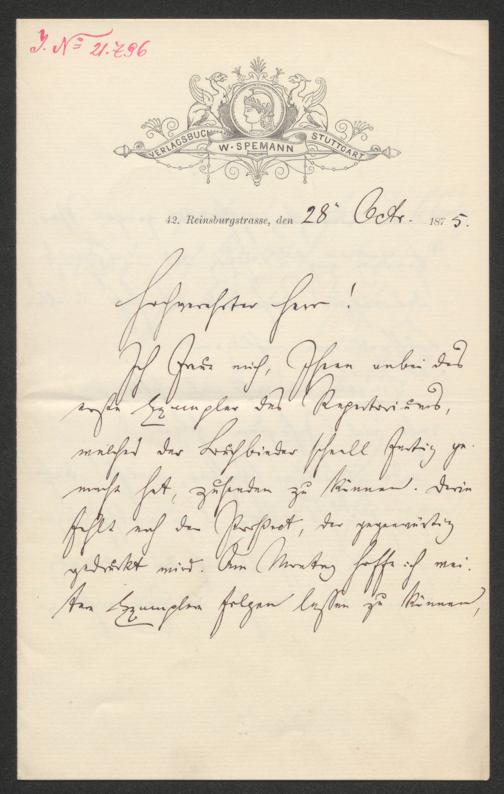 J. No 21.796
VERLAGSBUCHH. W. SPEMANN STUTTGART
42. Reinsburgstrasse, den 28 Octr. 1875.
Hochverehrter Herr!
Ich freue mich, Ihnen anbei das
erste Exemplar des Repertoriums,
welches der Buchbinder schnell fertig ge-
macht hat, zusenden zu können. Darin
fehlt noch der Prospect, der gegenwärtig
gedruckt wird. Am Montag hoffe ich wei-
tere Exemplare folgen lassen zu können,